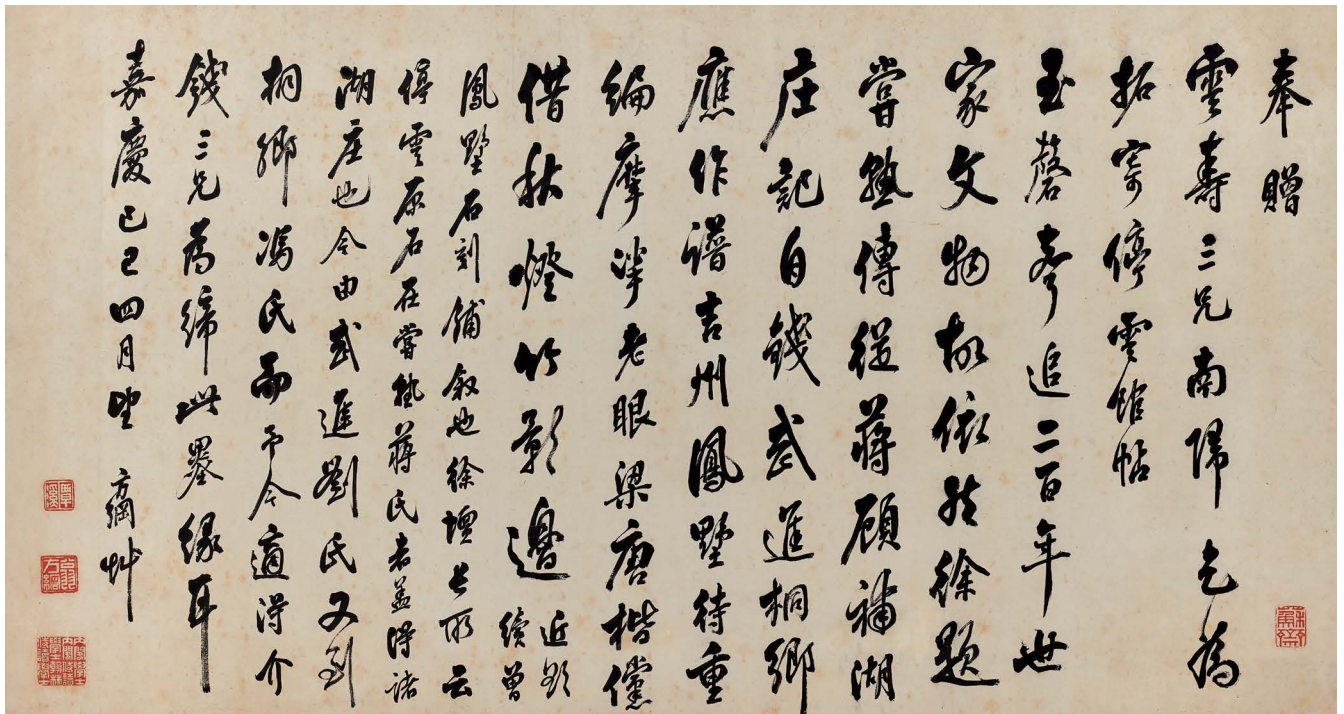 奉贈
雲壽三兄南歸乞爲
拓寄停雲館帖
玉磬齋追二百年世
家文物故依然徐題
嘗熟傳從蔣顧補湖
庄記自錢武進桐鄉
應作譜吉州鳳墅待重
編摩挲老眼梁唐楷儻
借秋燈竹影邊近欲
續曾
鳳墅石刻鋪敘也徐壇長所云
停雲原石在嘗熟蔣氏者蓋得諸
湖庄也今由武進劉氏又到
桐鄉馮氏而予今適得介
錢三兄爲締此墨緣耳
嘉慶己巳四月望 方綱艸
覃溪
翁方綱